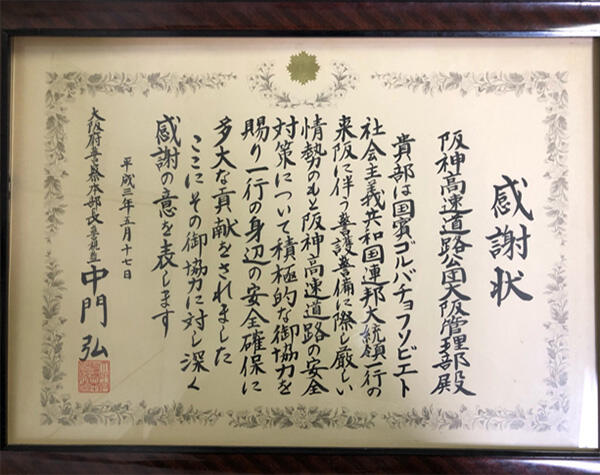 感謝状
阪神高速道路公団大阪管理部殿
貴部は国賓ゴルバチョフソビエト
社会主義共和国連邦大統領一行の
来阪に伴う警護警備に際し厳しい
情勢のもと阪神高速道路の安全
対策について積極的な御協力を
賜り一行の身辺の安全確保に
多大な貢献をされました
ここにその御協力に対し深く
感謝の意を表します
平成三年五月十七日
大阪府警察本部長警視監中門弘